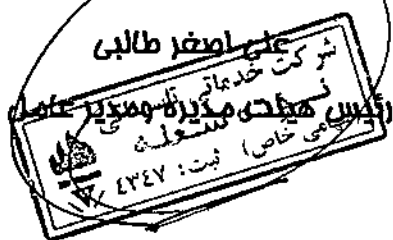 علی اصغر طالبی
رئیس هیئت مدیره ومدیر عامل
شرکت خدماتی
شعله
خاص) ثبت: ٤٣٤٧